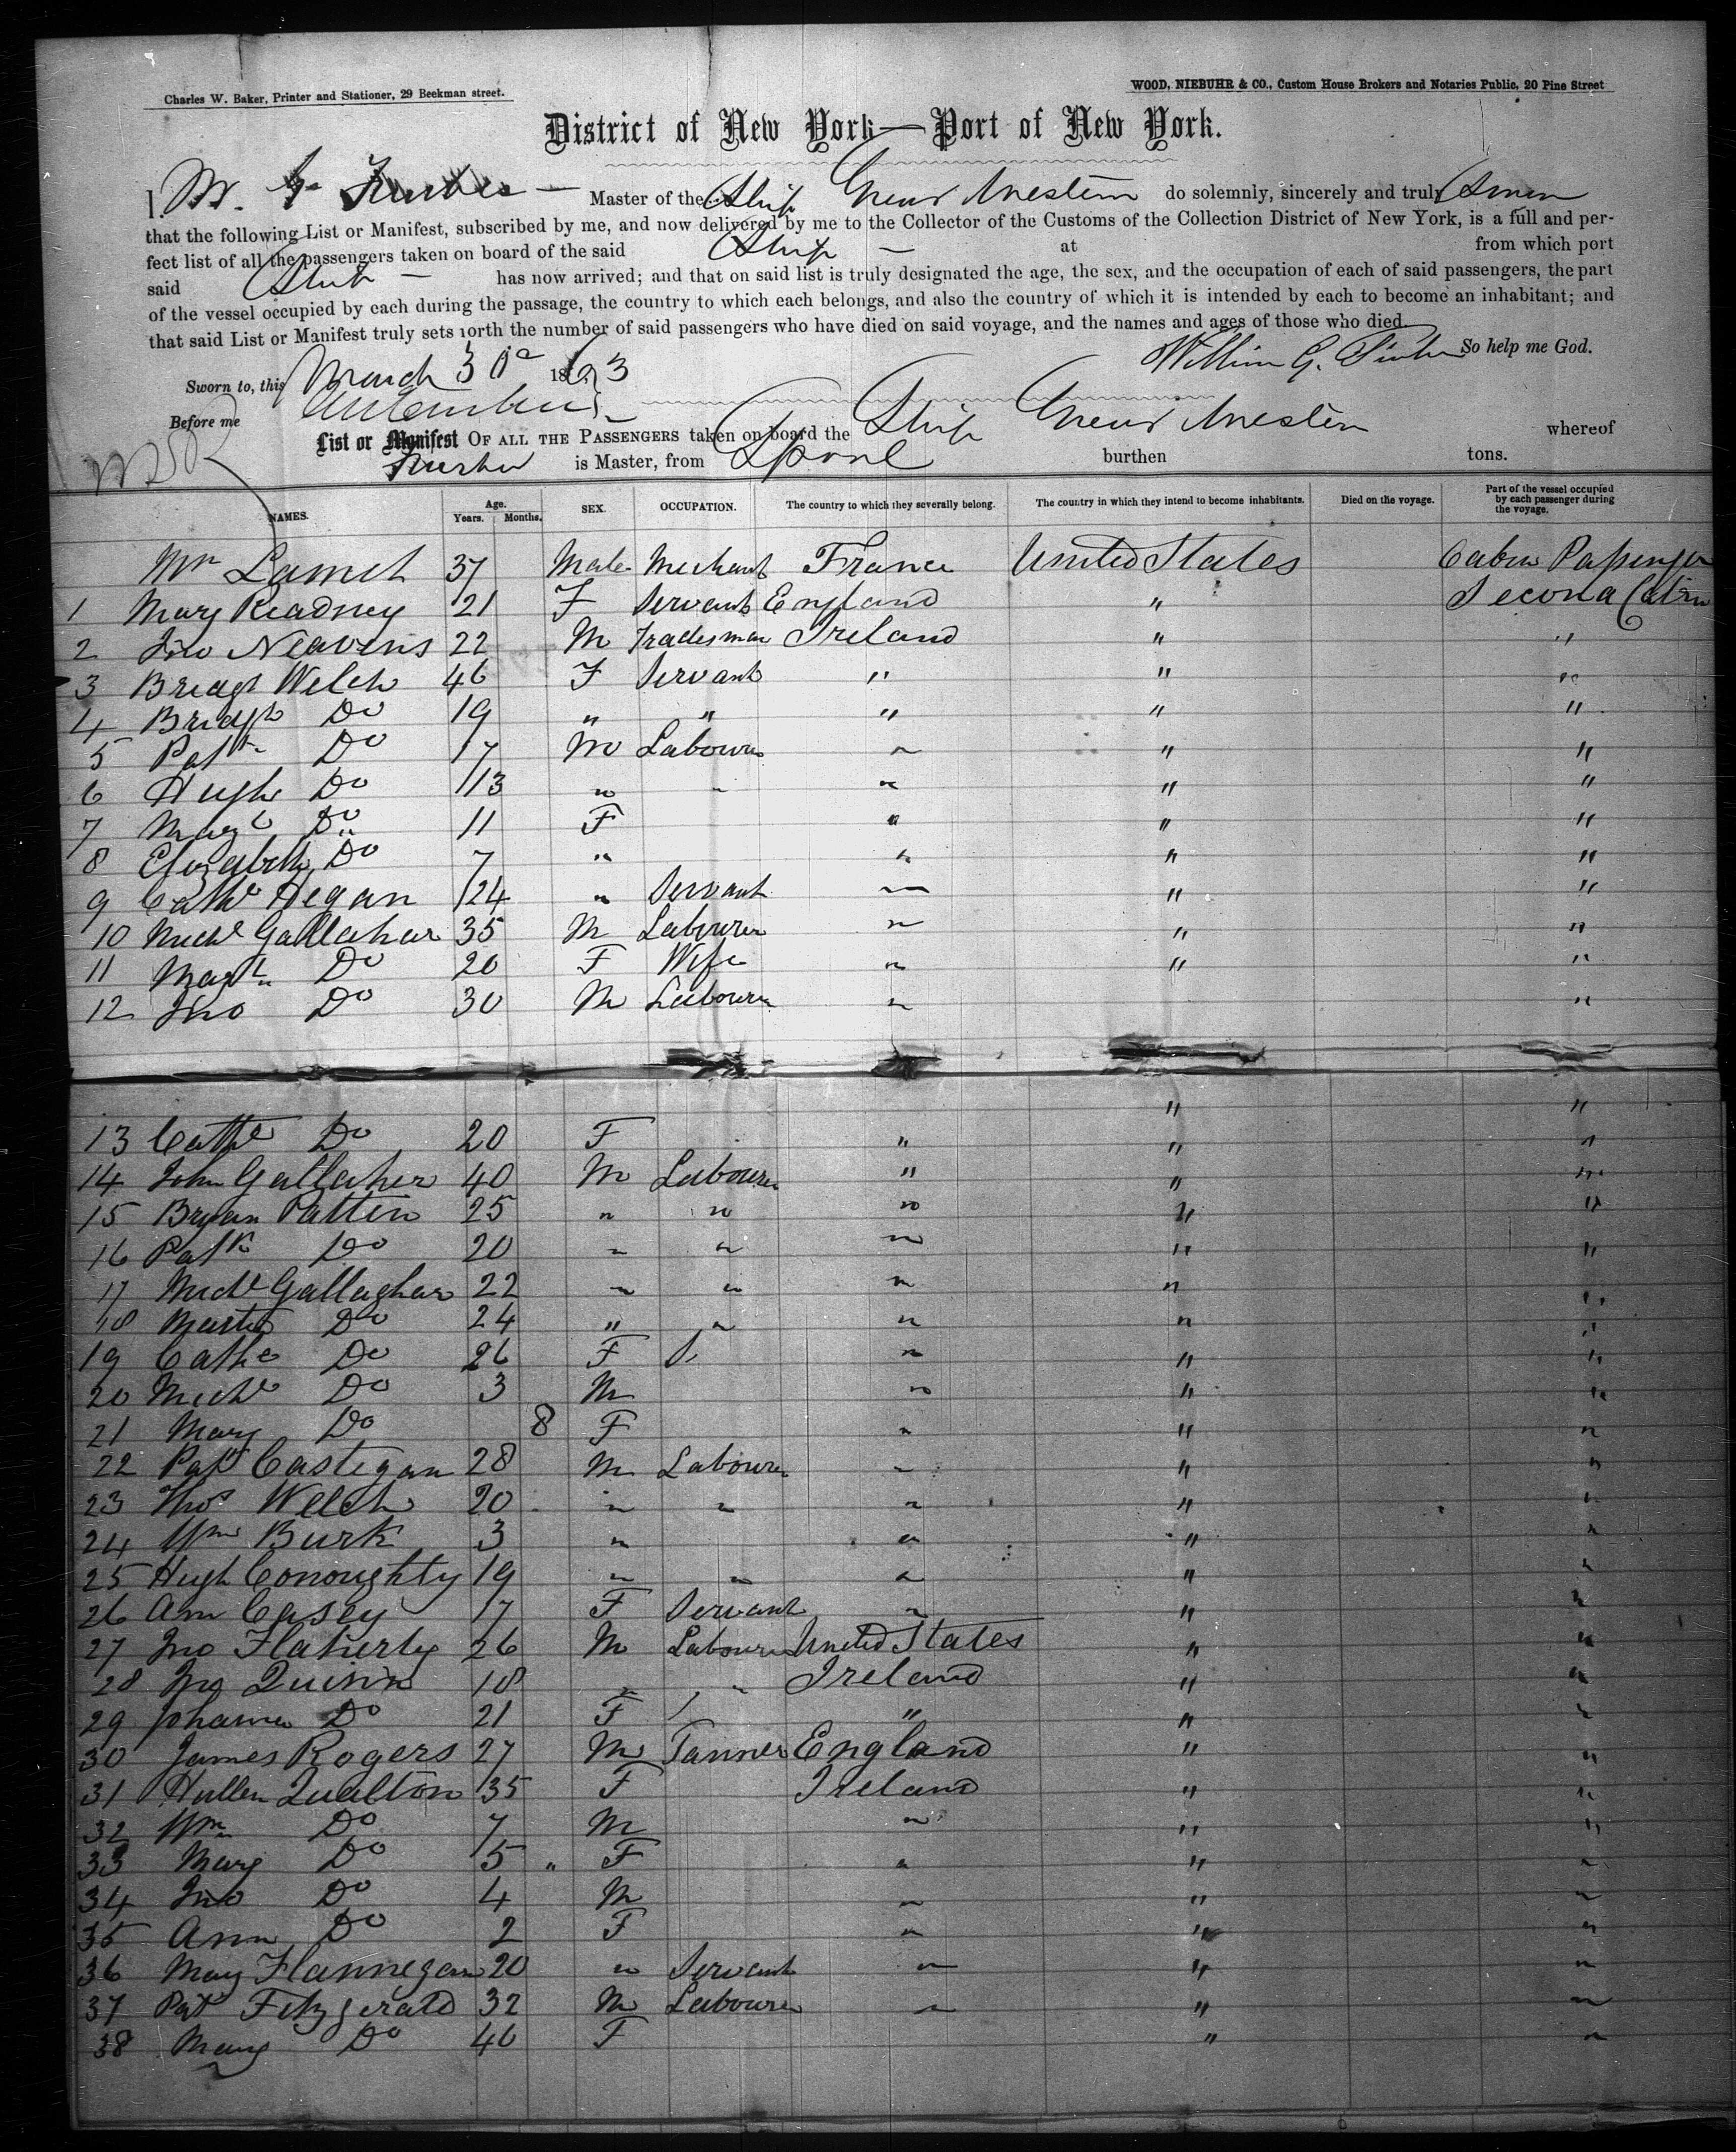 Charles W. Baker, Printer and Stationer, 29 Beekman street.
WOOD, NIEBUHR & CO., Custom House Brokers and Notaries Public, 20 Pine Street
District of New York—Port of New York.
I, W. G. Master of the Ship Great Western do solemnly, sincerely and truly Swear
that the following List or Manifest, subscribed by me, and now delivered by me to the Collector of the Customs of the Collection District of New York, is a full and per-
fect list of all the passengers taken on board of the said Ship — at from which port
said Ship — has now arrived; and that on said list is truly designated the age, the sex, and the occupation of each of said passengers, the part
of the vessel occupied by each during the passage, the country to which each belongs, and also the country of which it is intended by each to become an inhabitant; and
that said List or Manifest truly sets forth the number of said passengers who have died on said voyage, and the names and ages of those who died.
William G. So help me God.
Sworn to, this March 30 1863
Before me
List or Manifest OF ALL THE PASSENGERS taken on board the Ship Great Western whereof
is Master, from Lpool burthen tons.
NAMES. Age. Years. Months. SEX. OCCUPATION. The country to which they severally belong. The country in which they intend to become inhabitants. Died on the voyage. Part of the vessel occupied by each passenger during the voyage.
Mr 37 Male Merchant France United States Cabin Passenger
1 Mary Readney 21 F Servant England " Second Cabin
2 Jno Neavins 22 M Tradesman Ireland " "
3 Bridgt Welch 46 F Servant " " "
4 Bridgt Do 19 " " " " "
5 Patk Do 17 M Labourer " " "
6 Hugh Do 13 " " " " "
7 Margt Do 11 F " " "
8 Elizabeth Do 7 " " " "
9 Cathe Hegan 24 " Servant " " "
10 Michl Gallahar 35 M Labourer " " "
11 Do 20 F Wife " " "
12 Jno Do 30 M Labourer " "
" "
13 Cathe Do 20 F " " "
14 John Gallaher 40 M Labourer " " "
15 Bryan Patten 25 " " " " "
16 Patk Do 20 " " " " "
17 Michl Gallaghar 22 " " " " "
18 Martin Do 24 " " " " "
19 Cathe Do 26 F S. " " "
20 Michl Do 3 M " " "
21 Mary Do 8 F " " "
22 Patk Castegan 28 M Labourer " " "
23 Thos Welch 20 " " " " "
24 Wm Burk 3 " " " "
25 Hugh Conoughty 19 " " " " "
26 Ann Casey 17 F Servant " " "
27 Jno Flaherty 26 M Labourer United States " "
28 Jno Quinn 18 " " Ireland " "
29 Johanna Do 21 F " " "
30 James Rogers 27 M Tanner England " "
31 Hellen Qualton 35 F Ireland " "
32 Wm Do 7 M " " "
33 Mary Do 5 " F " " "
34 Jno Do 4 M " " "
35 Ann Do 2 F " " "
36 Mary Flannegan 20 " Servant " " "
37 Pat Fitzgerald 32 M Labourer " " "
38 Mary Do 40 F " "